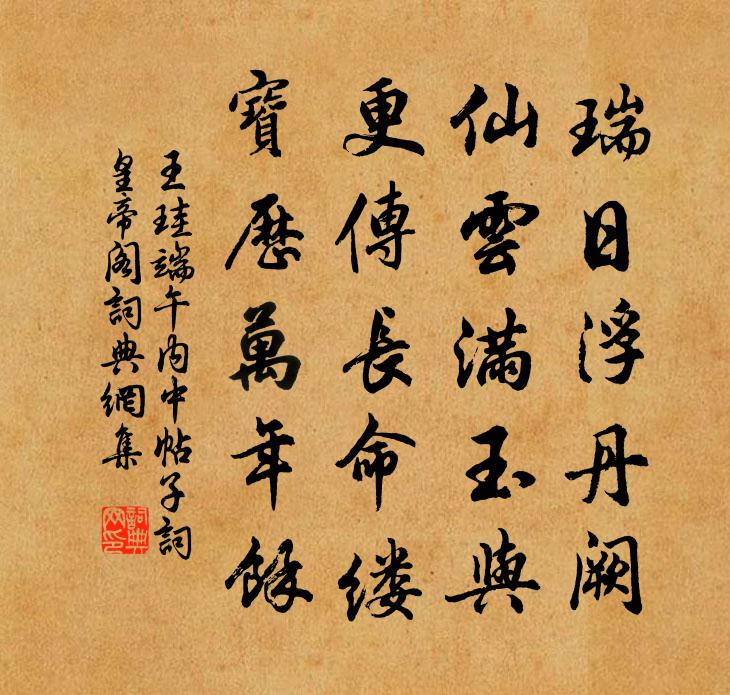 瑞日浮丹闕
仙雲滿玉輿
更傳長命缕
寶歷萬年餘
王珪端午内中帖子詞
皇帝閣詞典網集
詞典网印